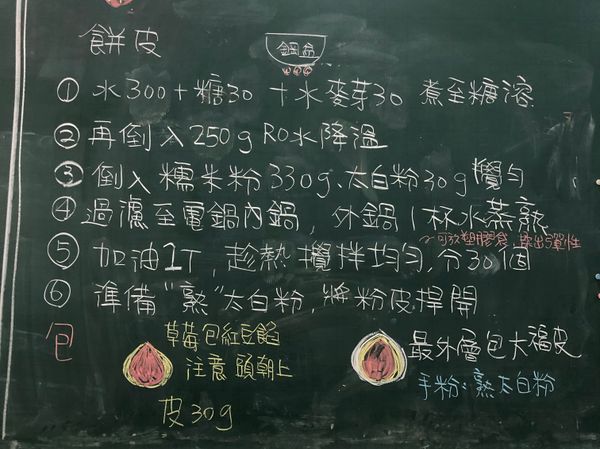 餅皮
鋼盆
① 水300+糖30+水麥芽30 煮至糖溶
② 再倒入250g RO水降溫
③ 倒入糯米粉330g、太白粉30g攪勻
④ 過濾至電鍋內鍋，外鍋1杯水蒸熟
可放塑膠袋 搓出彈性
⑤ 加油1T，趁熱攪拌均勻，分30個
⑥ 準備"熟"太白粉，將粉皮捍開
包
草莓包紅豆餡
注意頭朝上
皮30g
最外層包大福皮
手粉：熟太白粉